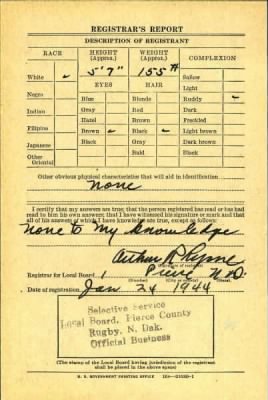 REGISTRAR'S REPORT
DESCRIPTION OF REGISTRANT
RACE HEIGHT (Approx.) WEIGHT (Approx.) COMPLEXION
5'7" 155 #
White ✓ Sallow
EYES HAIR Light
Negro Blue Blonde Ruddy ✓
Indian Gray Red Dark
Hazel Brown Freckled
Filipino Brown ✓ Black ✓ Light brown
Japanese Black Gray Dark brown
Other Oriental Bald Black
Other obvious physical characteristics that will aid in identification
None
I certify that my answers are true; that the person registered has read or has had
read to him his own answers; that I have witnessed his signature or mark and that
all of his answers of which I have knowledge are true, except as follows:
None to My Knowledge
Arthur R
(Signature of registrar)
Registrar for Local Board 1 Pierce N.D.
Date of registration Jan 24 1944
Selective Service
Local Board, Pierce County
Rugby, N. Dak.
Official Business
(The stamp of the Local Board having jurisdiction of the registrant
shall be placed in the above space)
U. S. GOVERNMENT PRINTING OFFICE